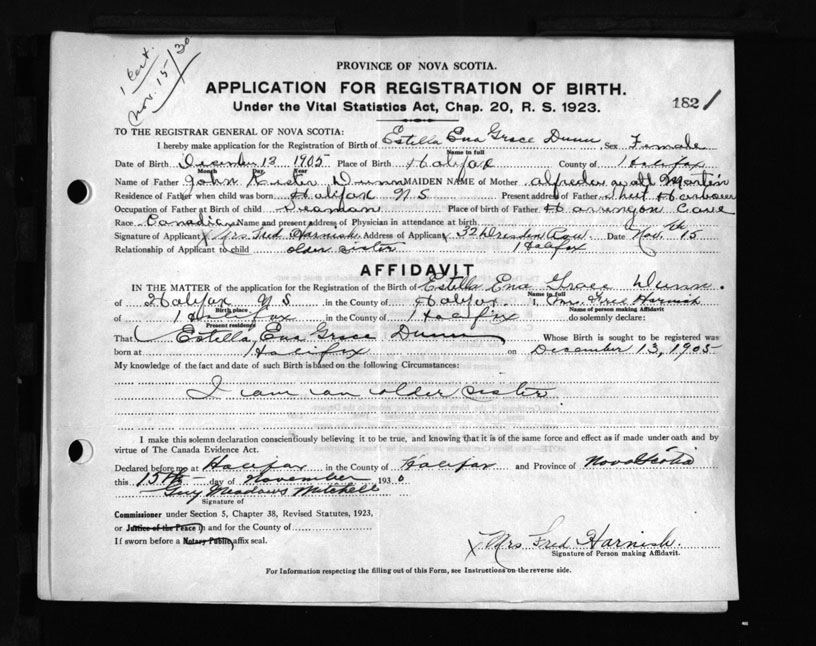 1 Cert.
Nov. 15/30
PROVINCE OF NOVA SCOTIA.
APPLICATION FOR REGISTRATION OF BIRTH.
Under the Vital Statistics Act, Chap. 20, R. S. 1923.
1821
TO THE REGISTRAR GENERAL OF NOVA SCOTIA:
I hereby make application for the Registration of Birth of Estella Ena Grace Dunn Sex Female
Name in full
Date of Birth December 13 1905 Place of Birth Halifax County of Halifax
Month Day Year
Name of Father John Dunn MAIDEN NAME of Mother Alfreda Martin
Residence of Father when child was born Halifax N S Present address of Father Harbour
Occupation of Father at Birth of child Seaman Place of birth of Father Cove
Race Canadian Name and present address of Physician in attendance at birth
Signature of Applicant X Mrs Fred Harnish Address of Applicant 32 Dresden Row Date Nov. 15th
Relationship of Applicant to child older sister Halifax
AFFIDAVIT
IN THE MATTER of the application for the Registration of the Birth of Estella Ena Grace Dunn.
Name in full
of Halifax N S in the County of Halifax. I, Mrs Fred Harnish
Birth place Name of person making Affidavit
of Halifax in the County of Halifax do solemnly declare:
Present residence
That Estella Ena Grace Dunn Whose Birth is sought to be registered was
born at Halifax on December 13, 1905
My knowledge of the fact and date of such Birth is based on the following Circumstances:
I am an older sister
I make this solemn declaration conscientiously believing it to be true, and knowing that it is of the same force and effect as if made under oath and by
virtue of The Canada Evidence Act.
Declared before me at Halifax in the County of Halifax and Province of Nova Scotia
this 15th day of November 1930
Guy Meadows Mitchell
Signature of
Commissioner under Section 5, Chapter 38, Revised Statutes, 1923,
or Justice of the Peace in and for the County of
If sworn before a Notary Public, affix seal.
X Mrs Fred Harnish.
Signature of Person making Affidavit.
For Information respecting the filling out of this Form, see Instructions on the reverse side.